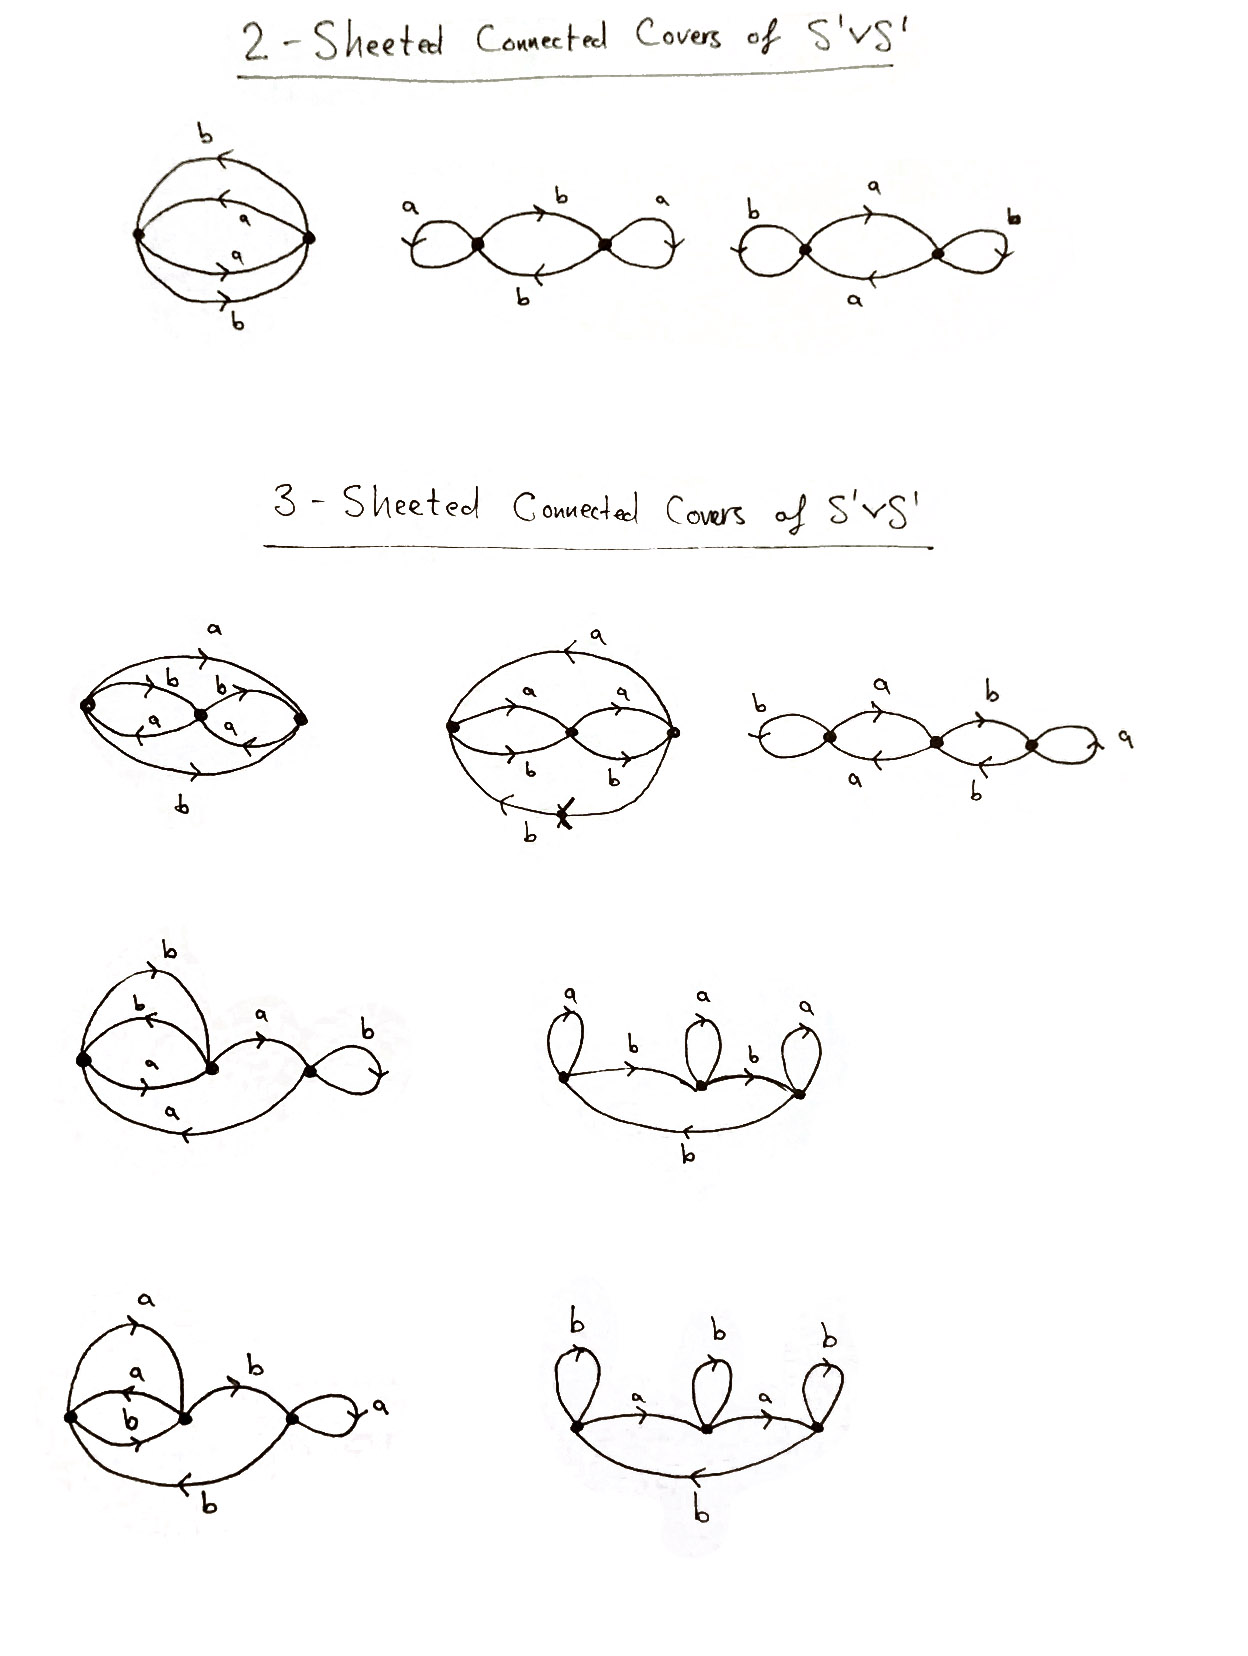 2-Sheeted Connected Covers of S¹∨S¹
b
a
a
b
a
b
a
b
b
a
b
a
3-Sheeted Connected Covers of S¹∨S¹
a
b
b
a
a
b
a
a
a
b
b
b
b
a
b
a
a
b
b
b
a
a
a
b
a
a
a
b
b
b
a
a
b
b
a
b
b
b
b
a
a
b